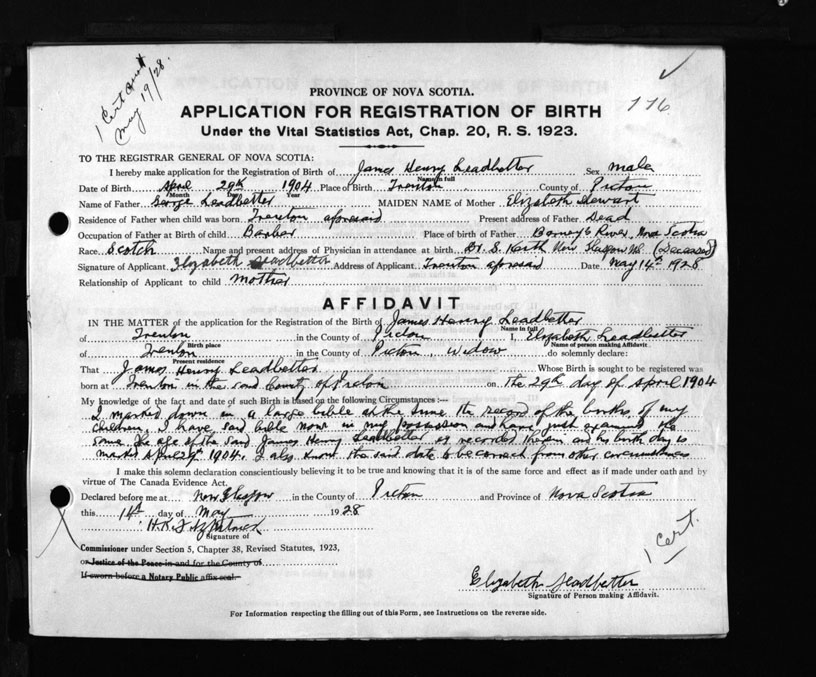 1 Cert
May 19/28.
PROVINCE OF NOVA SCOTIA.
116
APPLICATION FOR REGISTRATION OF BIRTH
Under the Vital Statistics Act, Chap. 20, R. S. 1923.
TO THE REGISTRAR GENERAL OF NOVA SCOTIA:
I hereby make application for the Registration of Birth of James Henry Leadbetter Sex male
Name in full
Date of Birth April 29th 1904 Place of Birth Trenton County of Pictou
Month Day Year
Name of Father George Leadbetter MAIDEN NAME of Mother Elizabeth Stewart
Residence of Father when child was born Trenton aforesaid Present address of Father Dead
Occupation of Father at Birth of child Barber Place of birth of Father Barneys River Nova Scotia
Race Scotch Name and present address of Physician in attendance at birth Dr. S. Keith New Glasgow NS. (Deceased)
Signature of Applicant Elizabeth Leadbetter Address of Applicant Trenton aforesaid Date May 14th 1928
Relationship of Applicant to child mother
AFFIDAVIT
IN THE MATTER of the application for the Registration of the Birth of James Henry Leadbetter
Name in full
of Trenton in the County of Pictou I, Elizabeth Leadbetter
Birth place Name of person making Affidavit
of Trenton in the County of Pictou, Widow do solemnly declare:
Present residence
That James Henry Leadbetter Whose Birth is sought to be registered was
born at Trenton in the said County of Pictou on The 29th day of April 1904
My knowledge of the fact and date of such Birth is based on the following Circumstances:—
I marked down in a large bible at the time the record of the births of my
children, I have said bible now in my possession and have just examined the
same. The age of the said James Henry Leadbetter is recorded therein and his birth day is
marked April 29th 1904. I also know the said date to be correct from other circumstances
I make this solemn declaration conscientiously believing it to be true and knowing that it is of the same force and effect as if made under oath and by
virtue of The Canada Evidence Act.
Declared before me at New Glasgow in the County of Pictou and Province of Nova Scotia
this 14th day of May 1928
Signature of
Commissioner under Section 5, Chapter 38, Revised Statutes, 1923,
or Justice of the Peace in and for the County of
If sworn before a Notary Public affix seal.
1 Cert.
Elizabeth Leadbetter
Signature of Person making Affidavit.
For Information respecting the filling out of this Form, see Instructions on the reverse side.